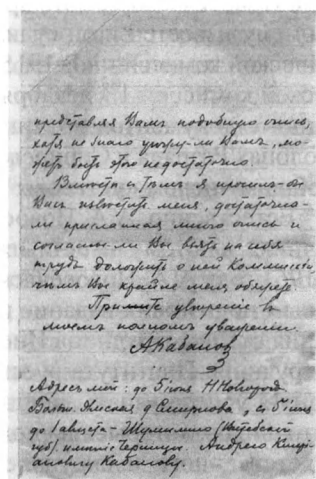 представляя Вамъ подобную опись,
хотя не было бы Вамъ, мо-
жетъ быть этого недостаточно.
Вместѣ съ тѣмъ я просилъ-бы
Васъ извѣстить меня, достаточно-
ли присланная мною опись и
согласны-ли Вы взять на себя
трудъ доложить о ней Коммиссіи,
чѣмъ Вы крайне меня обяжете.
Примите увереніе въ
моемъ полномъ уваженіи.
АКабановъ
Адресъ мой: до 5 іюня ННовгородъ
д Смирнова, съ 5 іюня
до 1 августа – Шумилино (Витебской
губ) имѣніе Андрею
Кабанову.